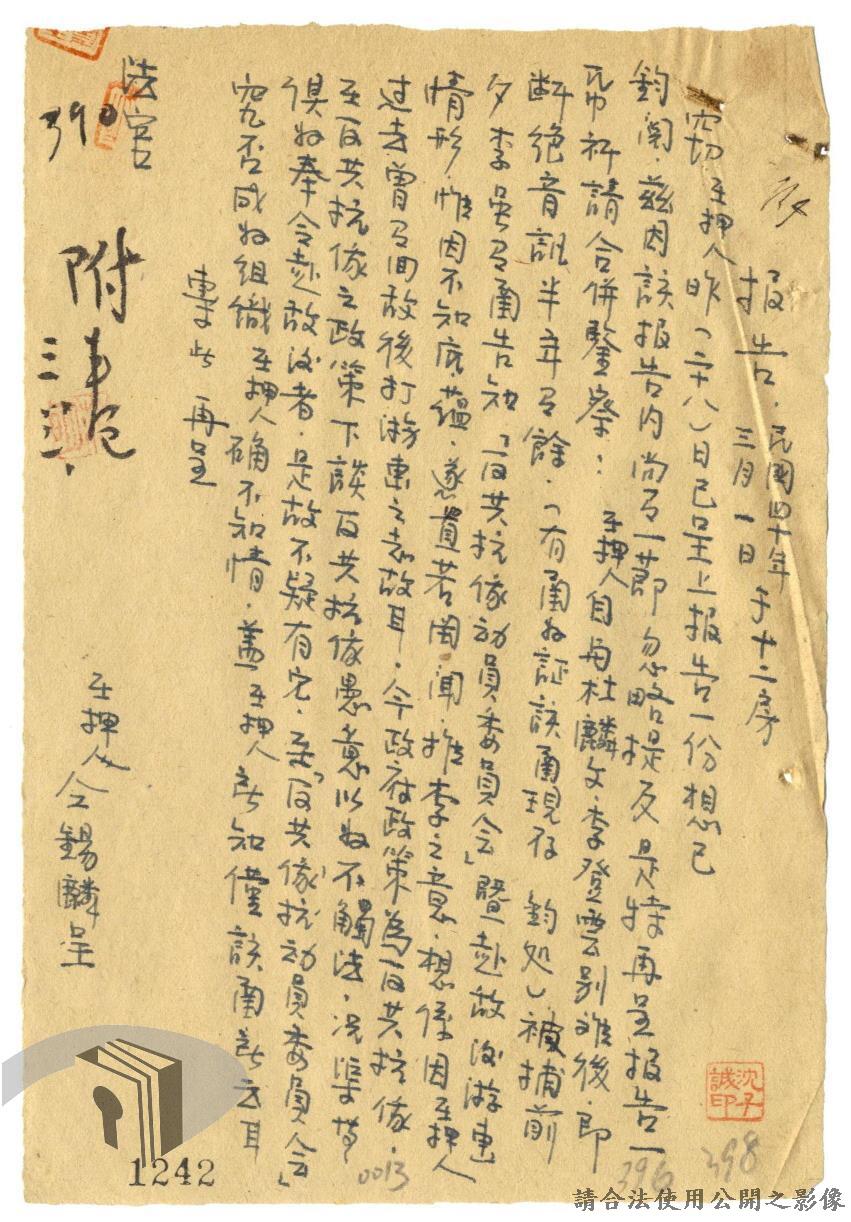 报告. 民國四十年三月一日 于十二房
窃 在押人昨(二十八)日已呈上报告一份想已
鈞閱.兹因該报告内尚有一節忽略提及是特再呈报告一
帋祈請合併鑒察: 在押人自與杜麟文.李登雲别離後.即
断絕音訊半年有餘.(有函为証該函現存 鈞处)被捕前
夕李虽有函告知「反共抗俄动員委員会」暨赴敌後游击
情形.惟因不知底蕴.遂置若罔聞.推李之意.想係因在押人
过去曾有回敌後打游击之志故耳.今政府政策為反共抗俄.
在反共抗俄之政策下談反共抗俄愚意以为不觸法.况渠等
俱为奉令赴敌後者.是故不疑有它.至「反共俄抗动員委員会」
究否成为組織在押人确不知情.盖在押人所知僅該函所云耳
專此 再呈
法官
在押人 仝錫麟呈
附卷
三
390
沈子誠印
398
396
0013
1242
請合法使用公開之影像